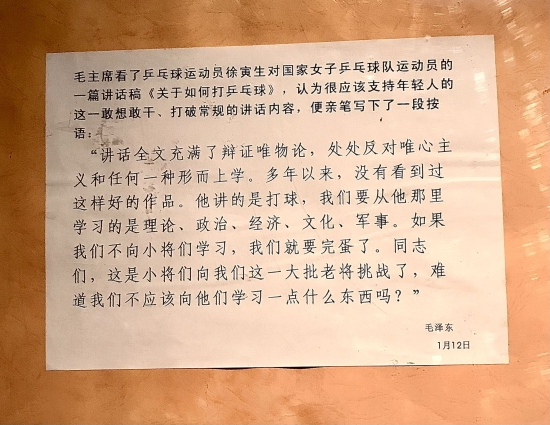 毛主席看了乒乓球运动员徐寅生对国家女子乒乓球队运动员的
一篇讲话稿《关于如何打乒乓球》，认为很应该支持年轻人的
这一敢想敢干、打破常规的讲话内容，便亲笔写下了一段按
语：
“讲话全文充满了辩证唯物论，处处反对唯心主
义和任何一种形而上学。多年以来，没有看到过
这样好的作品。他讲的是打球，我们要从他那里
学习的是理论、政治、经济、文化、军事。如果
我们不向小将们学习，我们就要完蛋了。同志
们，这是小将们向我们这一大批老将挑战了，难
道我们不应该向他们学习一点什么东西吗？”
毛泽东
1月12日